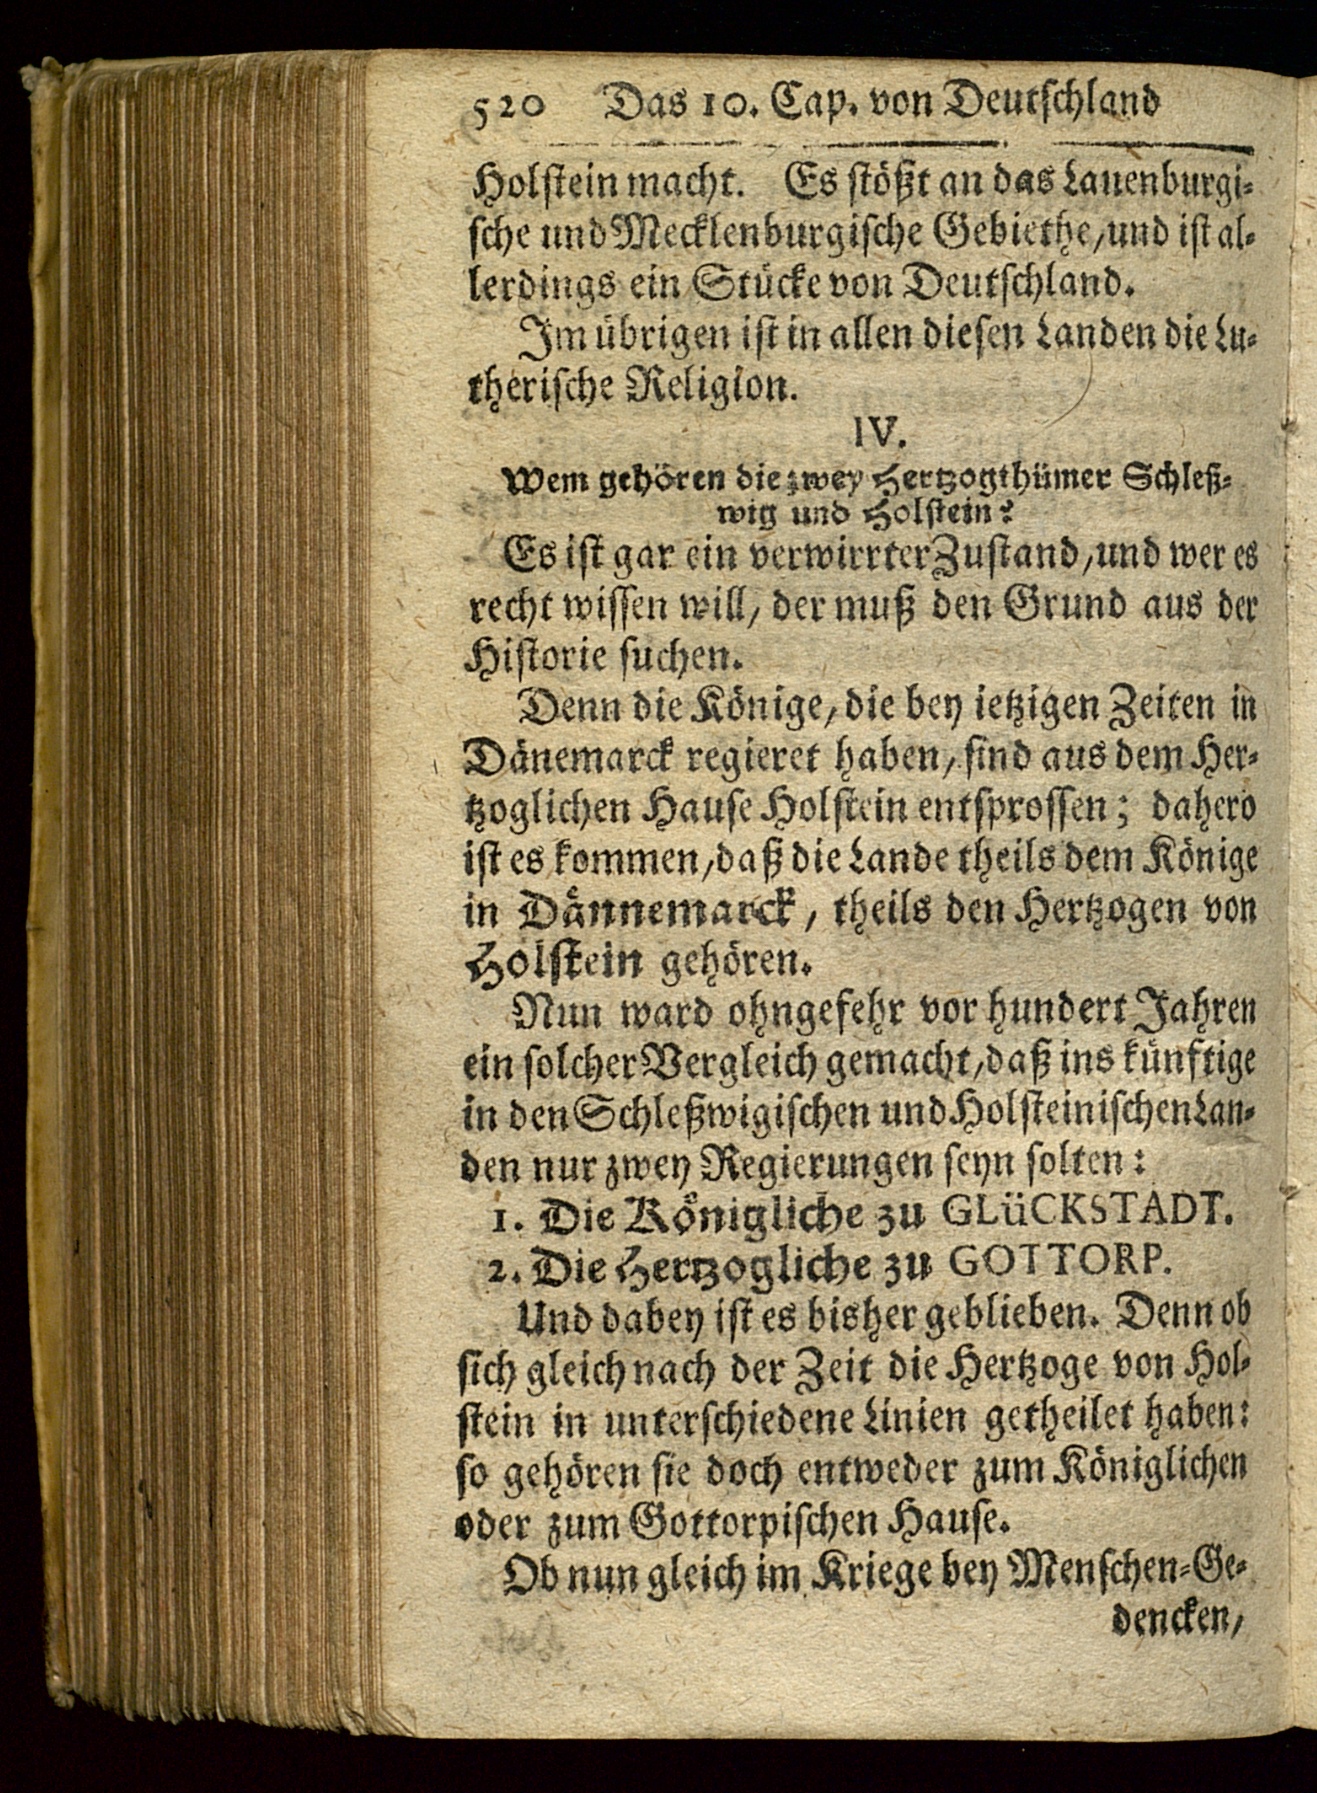 520 Das 10. Cap. von Deutschland
Holstein macht. Es stößt an das Lauenburgi-
sche und Mecklenburgische Gebiethe, und ist al-
lerdings ein Stücke von Deutschland.
Im übrigen ist in allen diesen Landen die Lu-
therische Religion.
IV.
Wem gehören die zwey Hertzogthümer Schleß-
wig und Holstein?
Es ist gar ein verwirrter Zustand, und wer es
recht wissen will, der muß den Grund aus der
Historie suchen.
Denn die Könige, die bey ietzigen Zeiten in
Dänemarck regieret haben, sind aus dem Her-
tzoglichen Hause Holstein entsprossen; dahero
ist es kommen, daß die Lande theils dem Könige
in Dännemarck, theils den Hertzogen von
Holstein gehören.
Nun ward ohngefehr vor hundert Jahren
ein solcher Vergleich gemacht, daß ins künftige
in den Schleßwigischen und Holsteinischen Lan-
den nur zwey Regierungen seyn solten:
1. Die Königliche zu GLüCKSTADT.
2. Die Hertzogliche zu GOTTORP.
Und dabey ist es bisher geblieben. Denn ob
sich gleich nach der Zeit die Hertzoge von Hol-
stein in unterschiedene Linien getheilet haben:
so gehören sie doch entweder zum Königlichen
oder zum Gottorpischen Hause.
Ob nun gleich im Kriege bey Menschen-Ge-
dencken,